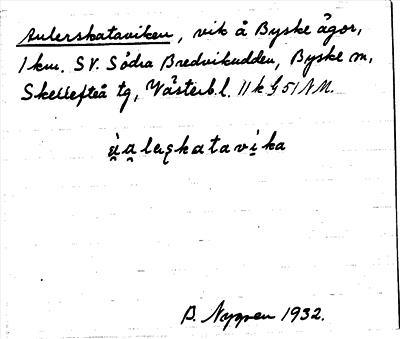 Aulerskataviken, vik å Byske ägor,
1 km. SV. Södra Bredvikudden, Byske sn,
Skellefteå tg, Västerb.l. 11 k G 51 NM.
u̯̇a̯leʂkatavi̤ka
B. Nyman 1932.